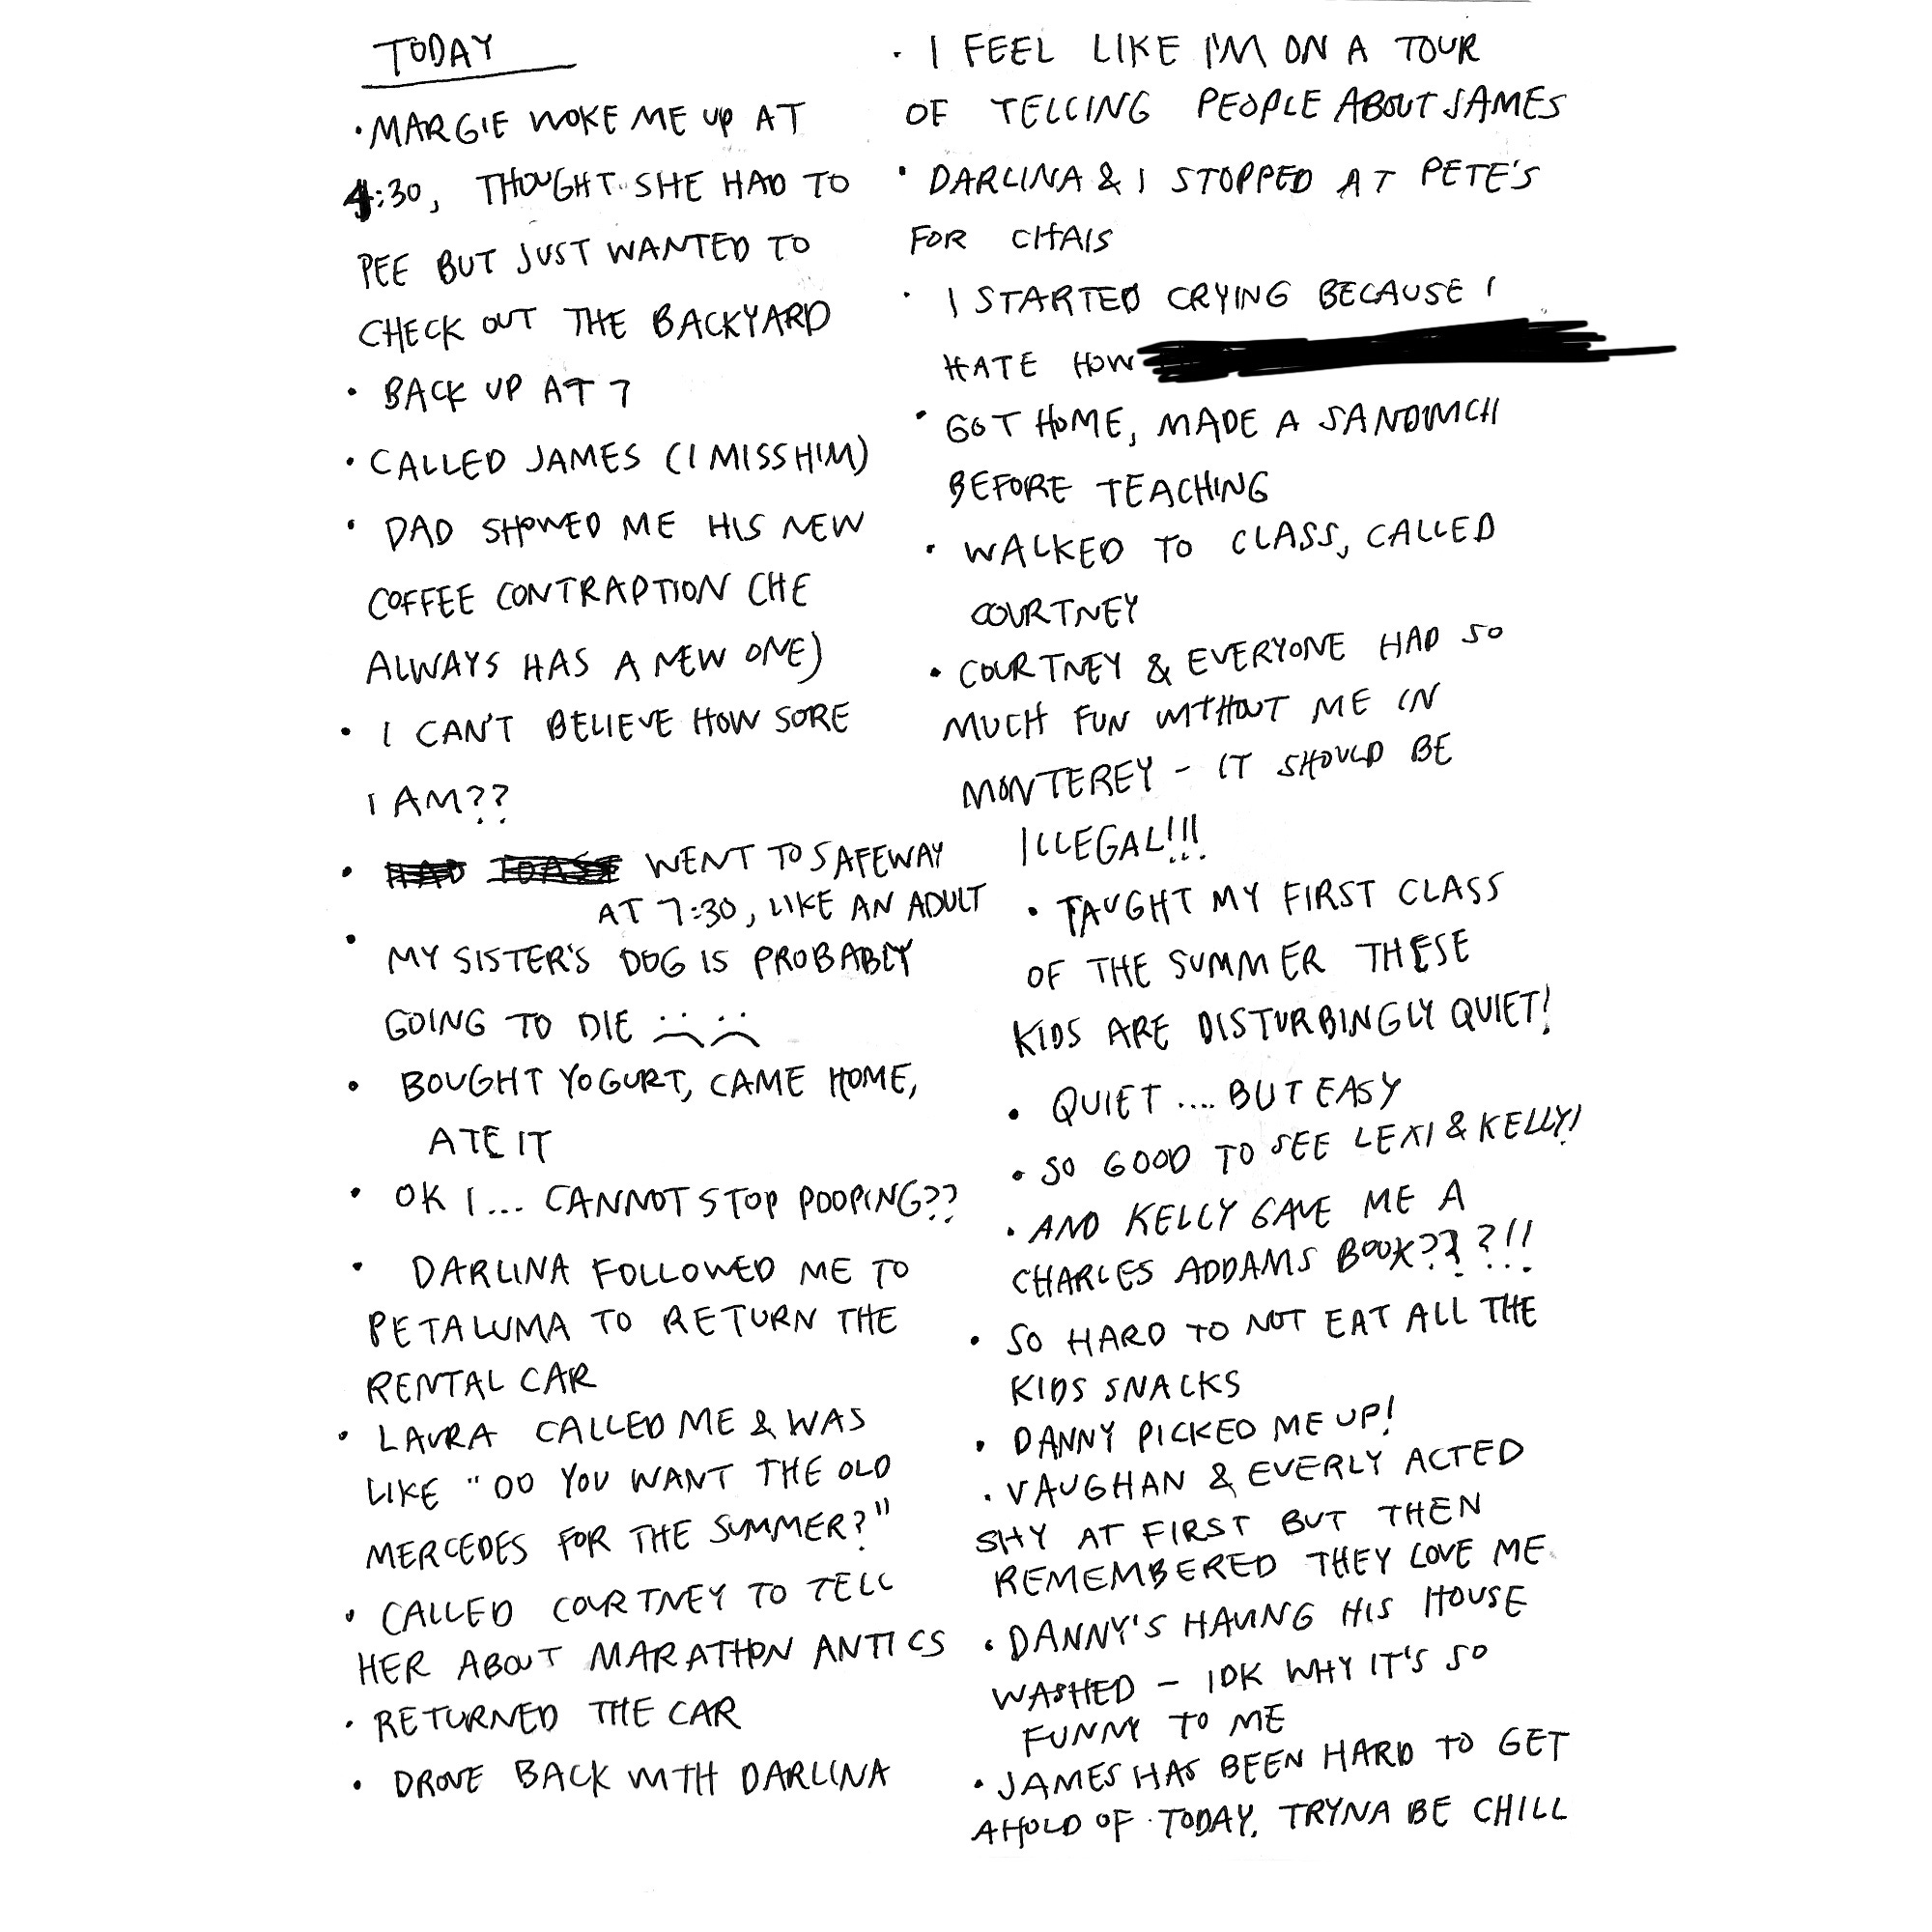 TODAY
• MARGIE WOKE ME UP AT
4:30, THOUGHT SHE HAD TO
PEE BUT JUST WANTED TO
CHECK OUT THE BACKYARD
• BACK UP AT 7
• CALLED JAMES (I MISS HIM)
• DAD SHOWED ME HIS NEW
COFFEE CONTRAPTION (HE
ALWAYS HAS A NEW ONE)
• I CAN'T BELIEVE HOW SORE
I AM??
• HAD TOAST WENT TO SAFEWAY
AT 7:30, LIKE AN ADULT
• MY SISTER'S DOG IS PROBABLY
GOING TO DIE
• BOUGHT YOGURT, CAME HOME,
ATE IT
• OK I... CANNOT STOP POOPING??
• DARLINA FOLLOWED ME TO
PETALUMA TO RETURN THE
RENTAL CAR
• LAURA CALLED ME & WAS
LIKE "DO YOU WANT THE OLD
MERCEDES FOR THE SUMMER?"
• CALLED COURTNEY TO TELL
HER ABOUT MARATHON ANTICS
• RETURNED THE CAR
• DROVE BACK WITH DARLINA
• I FEEL LIKE I'M ON A TOUR
OF TELLING PEOPLE ABOUT JAMES
• DARLINA & I STOPPED AT PETE'S
FOR CHAIS
• I STARTED CRYING BECAUSE I
HATE HOW
• GOT HOME, MADE A SANDWICH
BEFORE TEACHING
• WALKED TO CLASS, CALLED
COURTNEY
• COURTNEY & EVERYONE HAD SO
MUCH FUN WITHOUT ME IN
MONTEREY - IT SHOULD BE
ILLEGAL!!!
• TAUGHT MY FIRST CLASS
OF THE SUMMER THESE
KIDS ARE DISTURBINGLY QUIET!
• QUIET .... BUT EASY
• SO GOOD TO SEE LEXI & KELLY!
• AND KELLY GAVE ME A
CHARLES ADDAMS BOOK???!!
• SO HARD TO NOT EAT ALL THE
KIDS SNACKS
• DANNY PICKED ME UP!
• VAUGHAN & EVERLY ACTED
SHY AT FIRST BUT THEN
REMEMBERED THEY LOVE ME
• DANNY'S HAVING HIS HOUSE
WASHED - IDK WHY IT'S SO
FUNNY TO ME
• JAMES HAS BEEN HARD TO GET
AHOLD OF TODAY. TRYNA BE CHILL